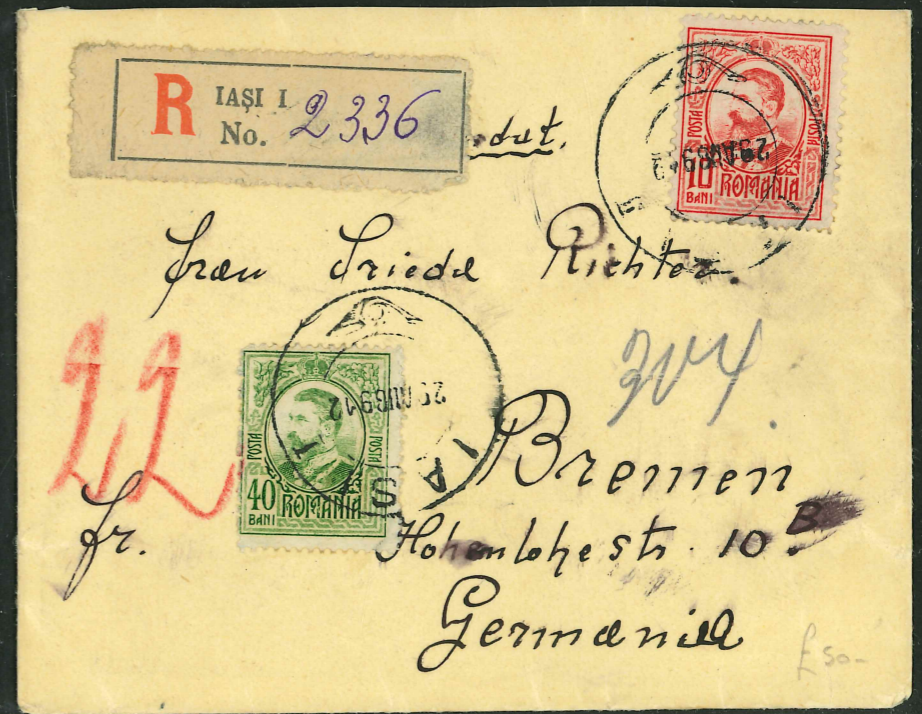 R IAȘI I
No. 2336
POSTA POSTA
10 ROMANIA
BANI
Frau Frieda Richter.
22
304
POSTA POSTA
40 ROMANIA
BANI
IAȘI
Bremen
fr.
Hohenlohestr. 10 B
Germania
£50-